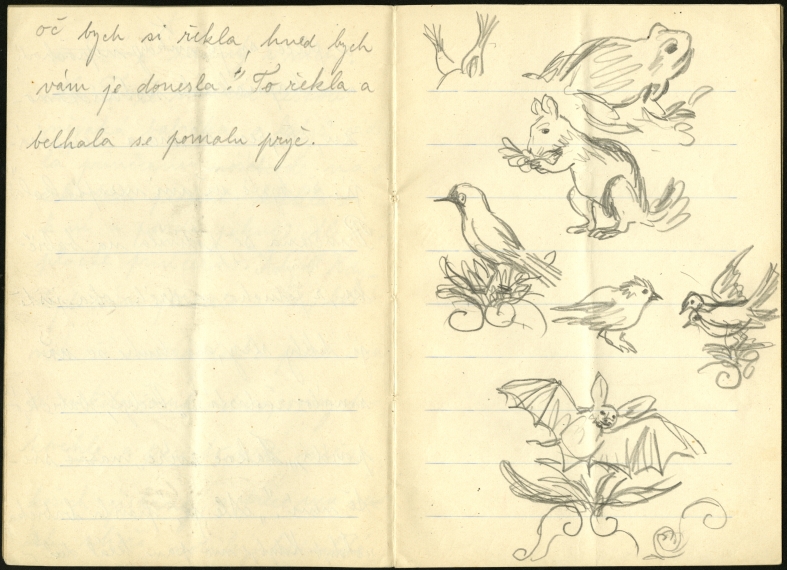 oč bych si řekla, hned bych
vám je donesla!" To řekla a
belhala se pomalu pryč.